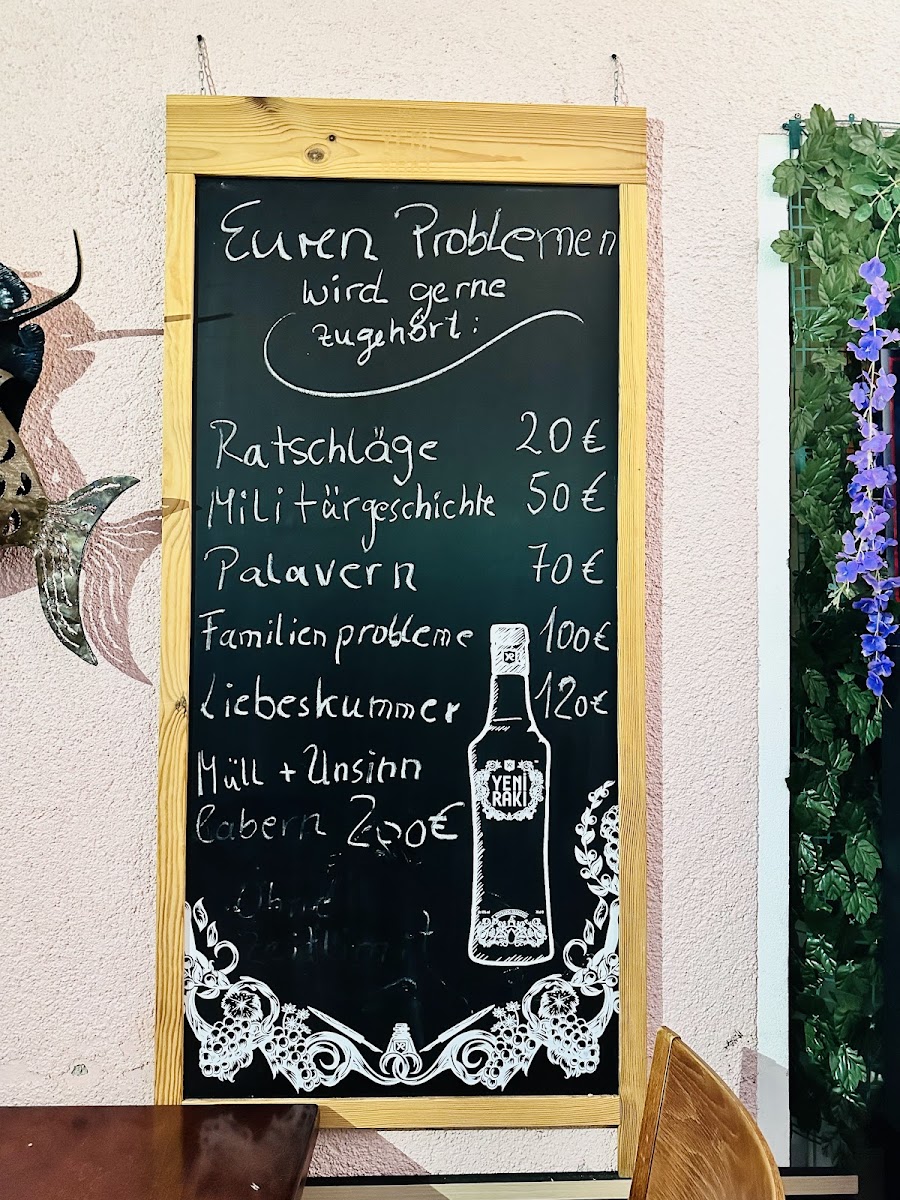 Euren Problemen
wird gerne
zugehört:
Ratschläge 20€
Militärgeschichte 50€
Palavern 70€
Familienprobleme 100€
Liebeskummer 120€
Müll + Unsinn
labern 200€
YENİ
RAKI
Ohne
Zeitlimit